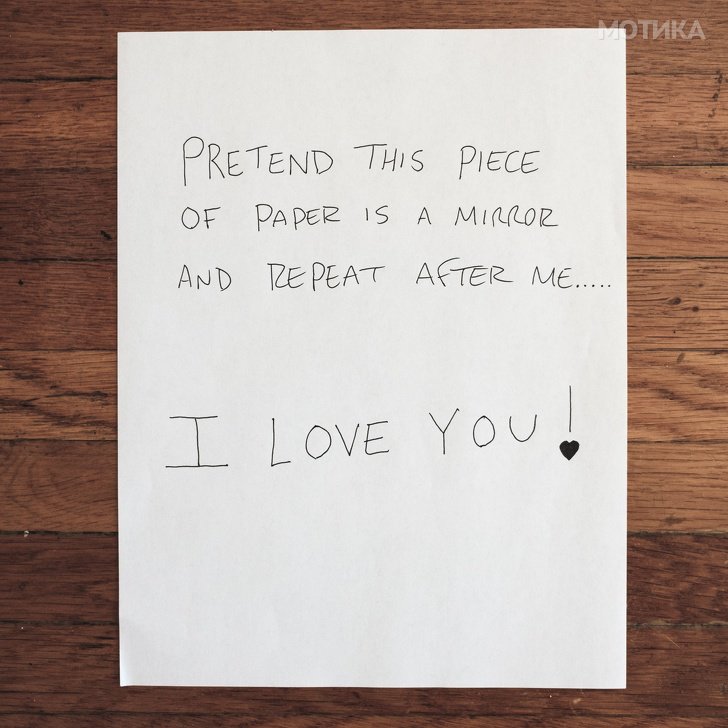 МОТИКА
PRETEND THIS PIECE
OF PAPER IS A MIRROR
AND REPEAT AFTER ME.....
I LOVE YOU!